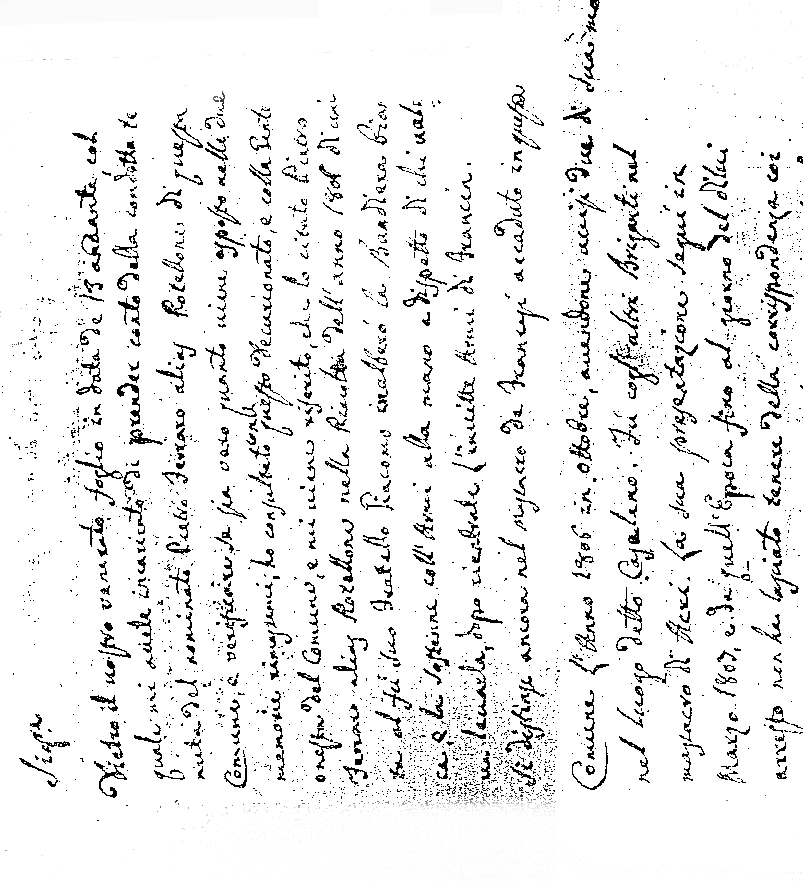 Sigre
Dietro il vostro venerato foglio in data de 13 andante col
quale mi avete incaricato di prender conto della condotta te
nuta del nominato Ferraro alias Rotellone di questa
Comune, e verificare se sia vero quanto viene esposto nelle due
memorie rimessemi, ho consultato questo Decurionato, e colla Gente
onesta del Comune, e mi viene riferito, che lo citato Piero
Ferraro alias Rotellone nella Rivolta dell'anno 1806 di uni
ta al fù suo Fratello Giacomo inalberò la Bandiera Bian
ca, e la sostenne coll'Armi alla mano a dispetto di chi vole
va levarla, dopo rientrate l'invitte Armi di Francia.
Si distinse ancora nel massacro de Francesi accaduto in questa
Comune l'Anno 1806 in Ottobre, avendone uccisi due di sua mano
nel luogo detto Casalino. Fù cogl'altri Briganti nel
massacro di Acri. La sua presentazione seguì in
Marzo 1807, e da quell'Epoca fino al giorno del di lui
arresto non ha lasciato tenere della corrispondenza coi